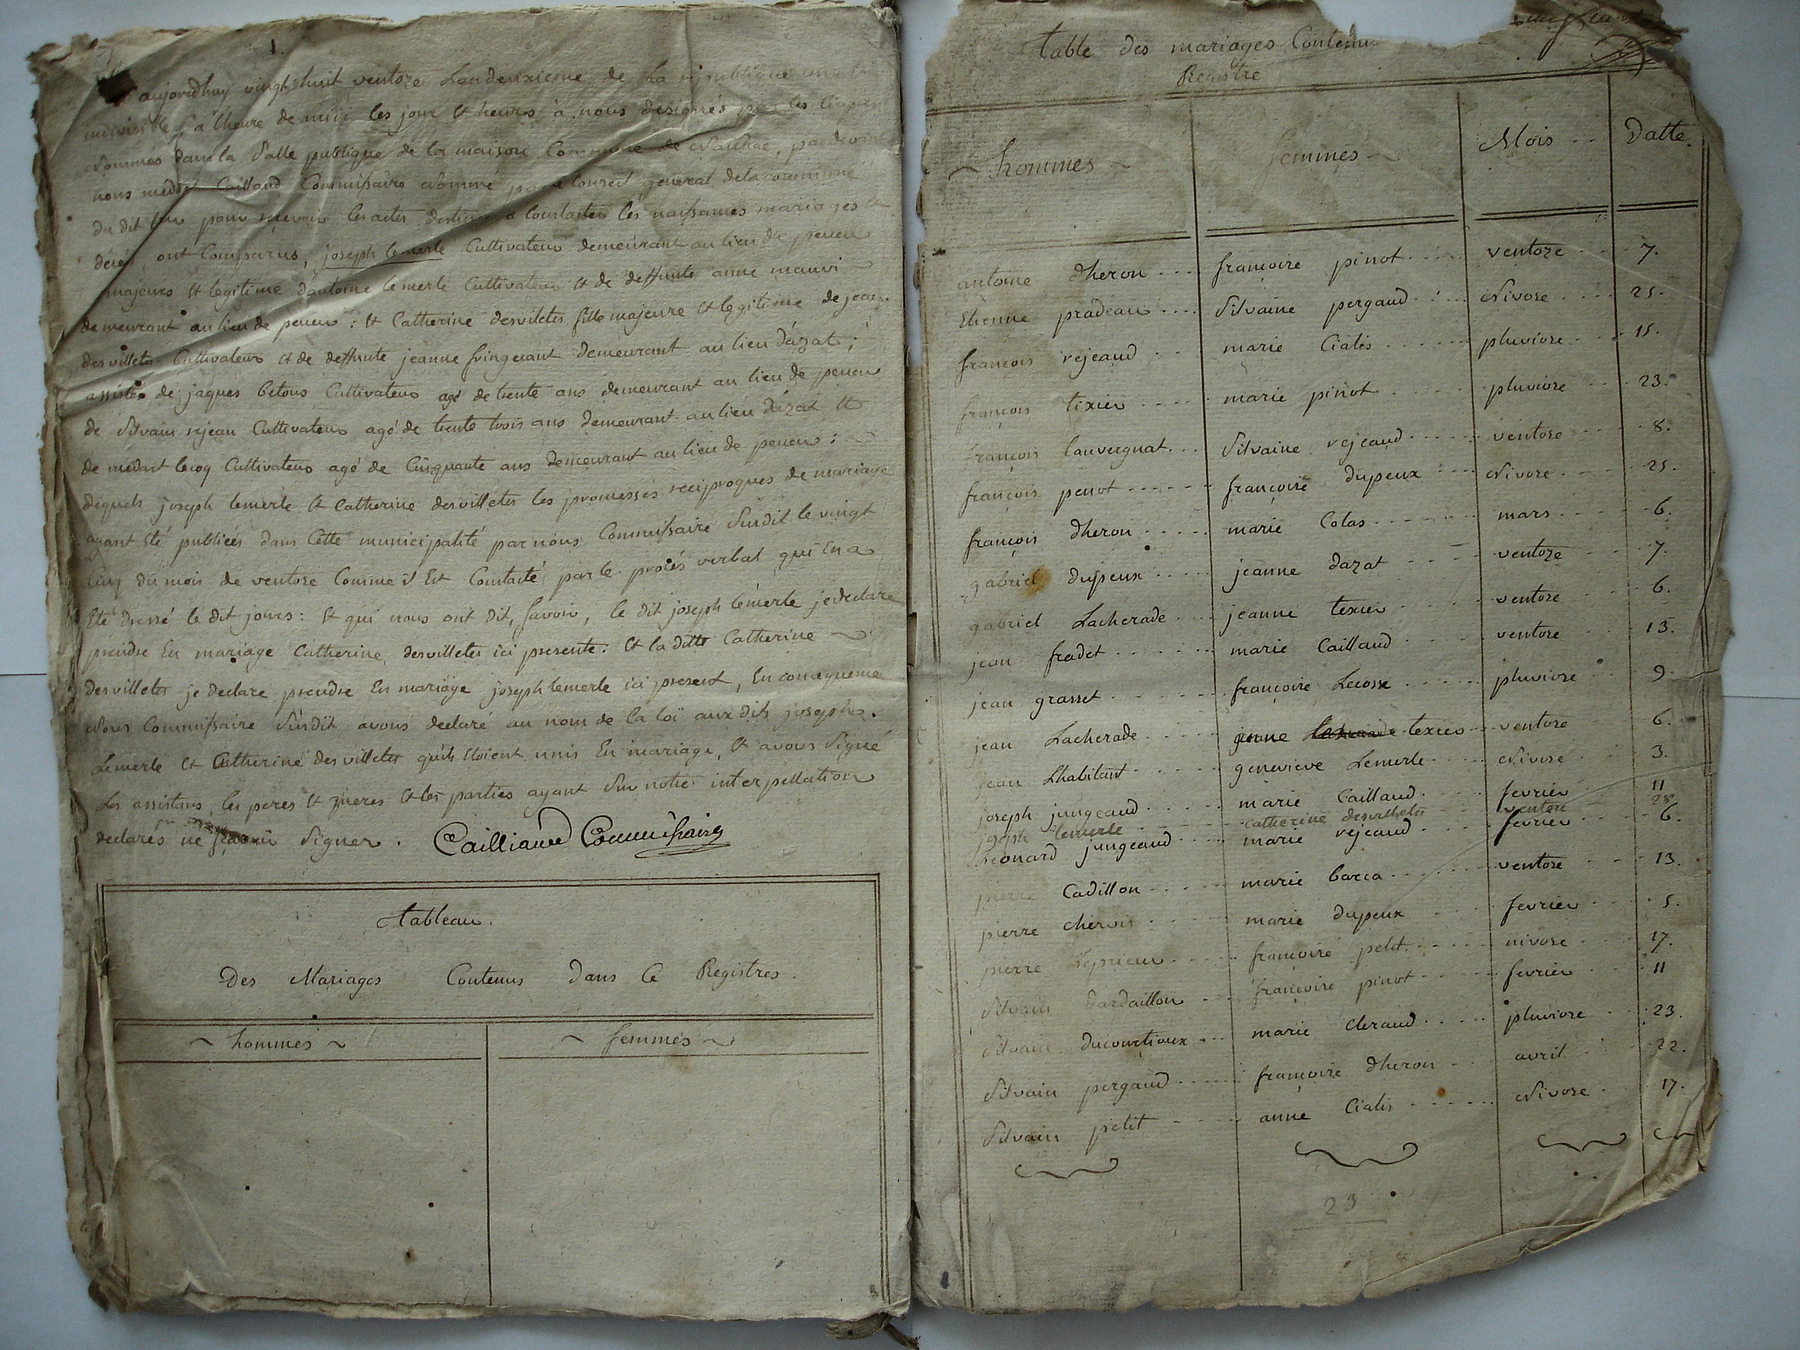 1.
aujourdhuy vingt huit ventoze Landeuxieme de la republique une &
indivisible, a lheure de midi les jour & heures à nous designés par les
sommes dans la Salle publique de la maison Commune de pardevant
nous medart Caillaud Commissaire nommé par le Conseil general delacommune
du dit lieu pour recevoir les actes destinés a Constater les naissances mariages &
decés, ont Comparus, joseph lemerle Cultivateur demeurant au lieu de peneu
majeurs et legitime dantoine lemerle Cultivateur et de deffunte anne mauvi
demeurant au lieu de peneu; & Catherine desviletes fille majeure & legitime de jean
desvilletes Cultivateur et de deffunte jeanne demeurant au lieu Dázat;
assistés de jaques betous Cultivateur agé de trente ans demeurant au lieu de peneu
de Silvain rejeau Cultivateur agé de trente trois ans demeurant au lieu Dázat &
de medart lecoq Cultivateur agé de Cinquante ans demeurant au lieu de peneu:
dequels joseph lemerle & Catherine desvilletes les promesses reciproques de mariage
ayant été publiées dans Cette municipalité par nous Commissaire Susdit le vingt
Cinq du mois de ventoze Comme il Est Constaté par le procés verbal qui En a
Eté dressé le dit jours: & qui nous ont dit, Savoir, le dit joseph lemerle je declare
prendre En mariage Catherine desvilletes ici presente. & la ditte Catherine
desvilletes je declare prendre En mariage joseph lemerle ici present, En consequence
Nous Commissaire Susdit avons declaré au nom de la loï aux dits joseph
Lemerle & Catherine desvilletes quils Etoient unis En mariage, & avons Signé
Les assistans, les peres & meres & les parties ayant Sur notre interpellation
declarés ne Signer. Cailliaud Commissaire
tableau.
Des Mariages Contenus Dans Ce Registres.
hommes femmes
table des mariages Contenus
Registre
hommes femmes Mois Datte.
antoine dheron françoise pinot ventoze 7.
Etienne pradeau Silvaine pergaud Nivose 25.
françois rejeaud marie Cialis pluviose 15.
françois tixier marie pinot pluviose 23.
françois lauvergnat Silvaine rejeaud ventose 8.
françois penot françoise dupeux Nivose 25.
françois dheron marie Colas mars 6.
gabriel dupeux jeanne dazat ventoze 7.
gabriel Lacherade jeanne texier ventose 6.
jean fradet marie Caillaud ventose 13.
jean grasset françoise Lecosse pluviose 9.
jean Lacherade jeanne texier ventose 6.
jean Lhabitant genevieve Lemerle Nivose 3.
joseph jungeaud marie Caillaud fevrier 11
joseph lemerle catherine desvilletes ventose 28
Leonard jungeaud marie rejeaud fevrier 6.
pierre Cadillon marie barca ventose 13.
pierre chervis marie dupeux fevrier 5.
pierre françoise petit nivose 17.
Silvain dardaillon françoise pinot fevrier 11
Silvain ducourtioux marie Claraud pluviose 23.
Silvain pergaud françoise dheron avril 22.
Silvain petit anne Cialis Nivose 17.
23